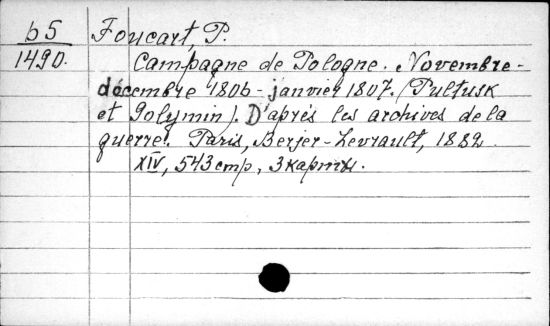 b5
1490.
Foucart, P.
Campagne de Pologne. Novembre-
décembre 1806 - janvier 1807. (Pultusk
et Golymin). D'après les archives de la
guerre. Paris, Berjer-Levrault, 1882.
XIV, 543 стр., 3 карты.